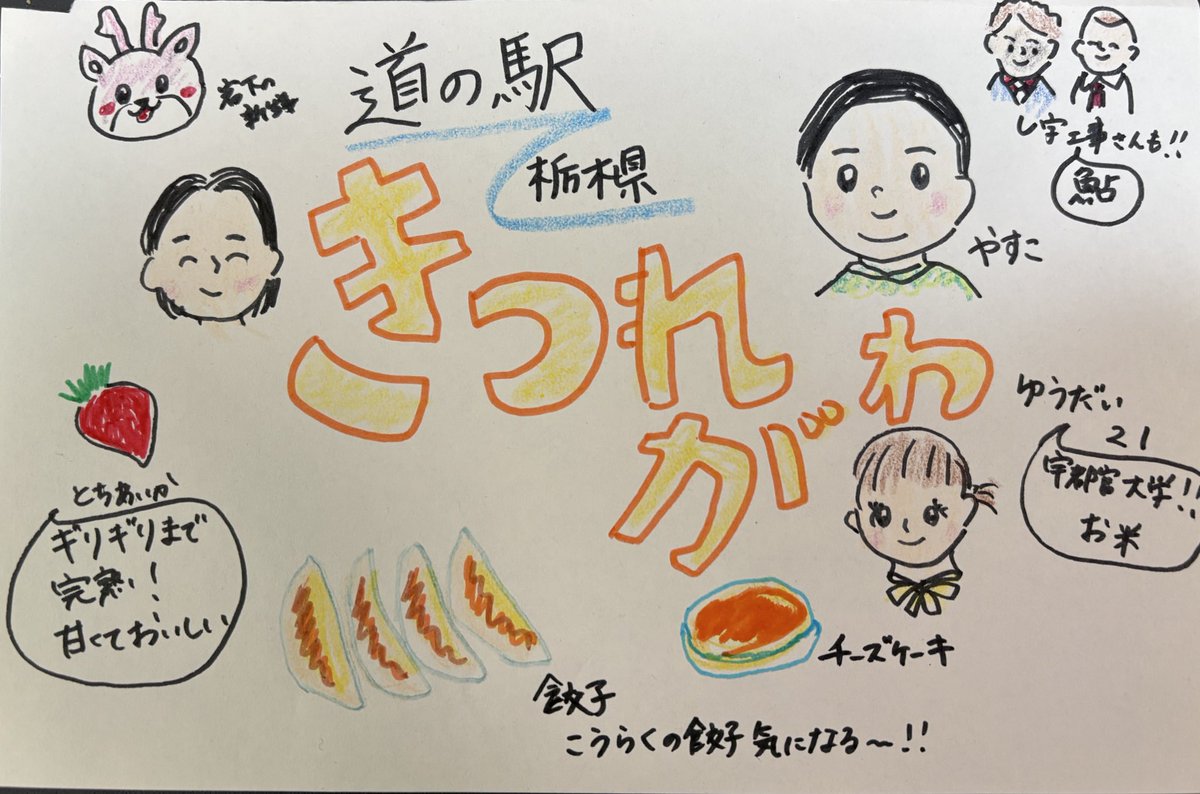 道の駅
栃木県
きつれがわ
岩下の
新生姜
やすこ
レ字工事さんも!!
鮎
ゆうだい
21
宇都宮大学!!
お米
とちあいか
ギリギリまで
完熟!
甘くておいしい
チーズケーキ
餃子
こうらくの餃子気になる〜!!